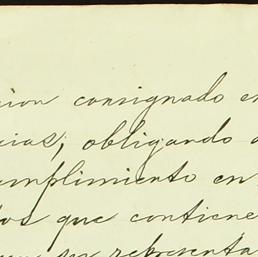 cion consignado en
cias, obligando a
umplimiento en
dos que contiene
representa